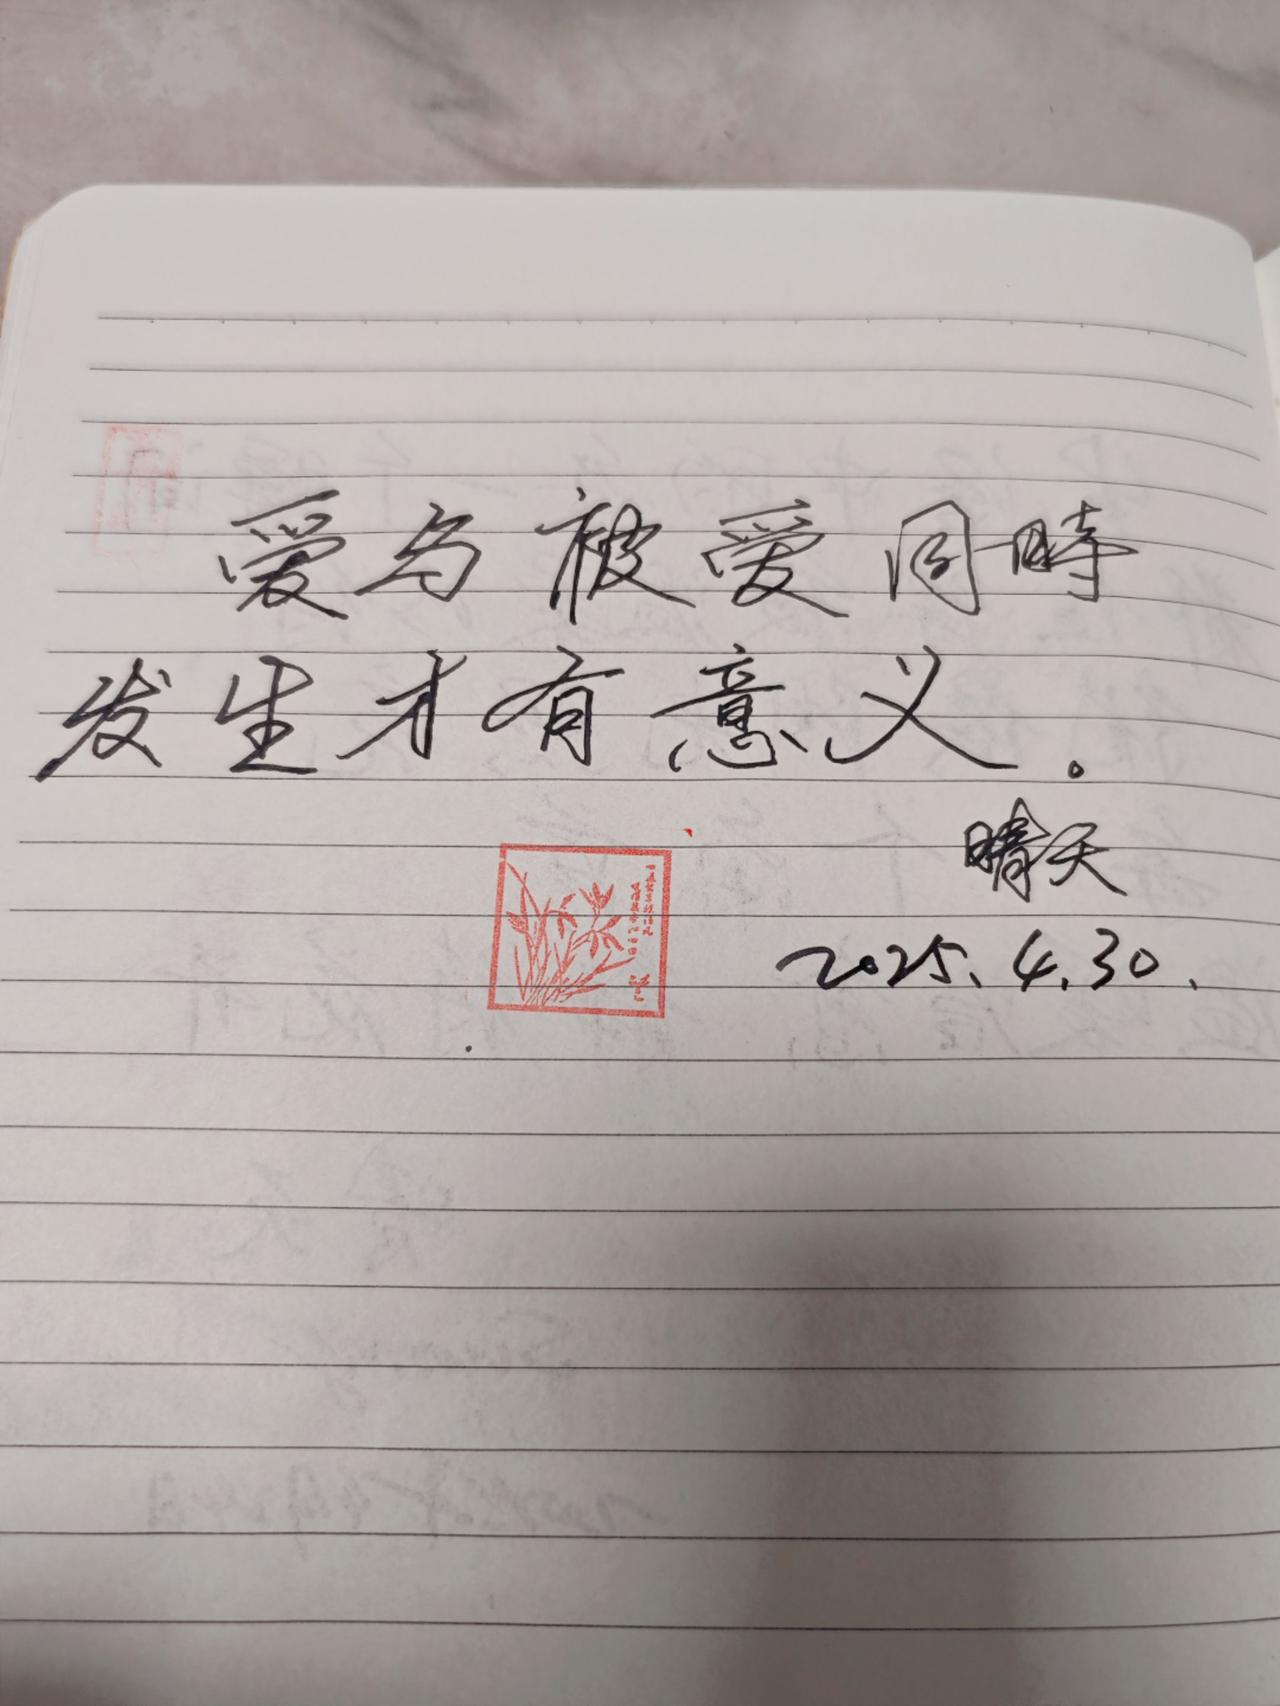 爱与被爱同時
发生才有意义。
晴天
2025.4.30.